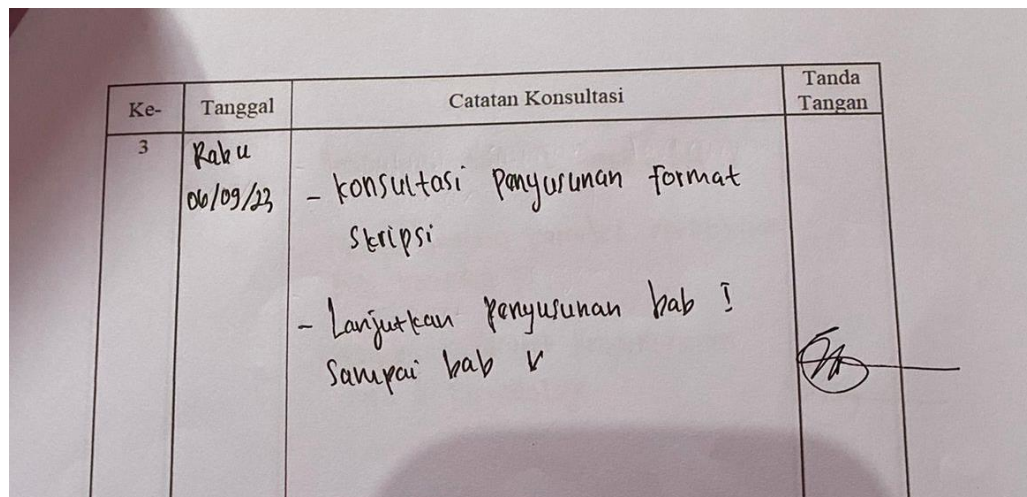 Ke- Tanggal Catatan Konsultasi Tanda Tangan
3 Rabu
06/09/23
- Konsultasi Penyusunan format
Skripsi
- Lanjutkan penyusunan bab I
Sampai bab V